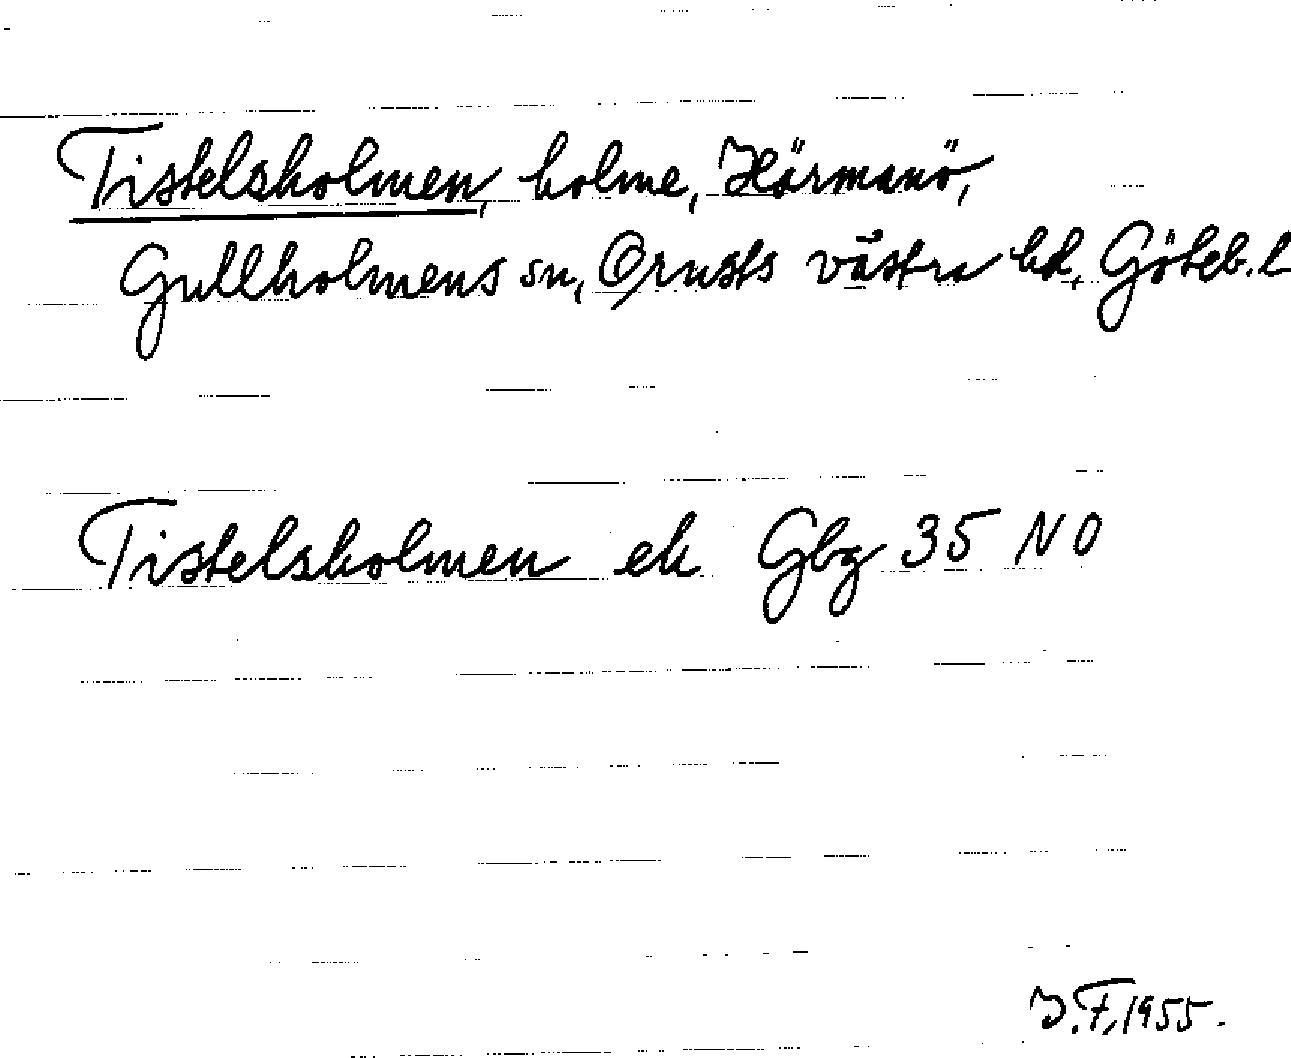 Tistelsholmen, holme, Härmanö,
Gullholmens sn, Orusts västra hd, Göteb. l
Tistelsholmen ek Gbg 35 NO
I.F. 1955.